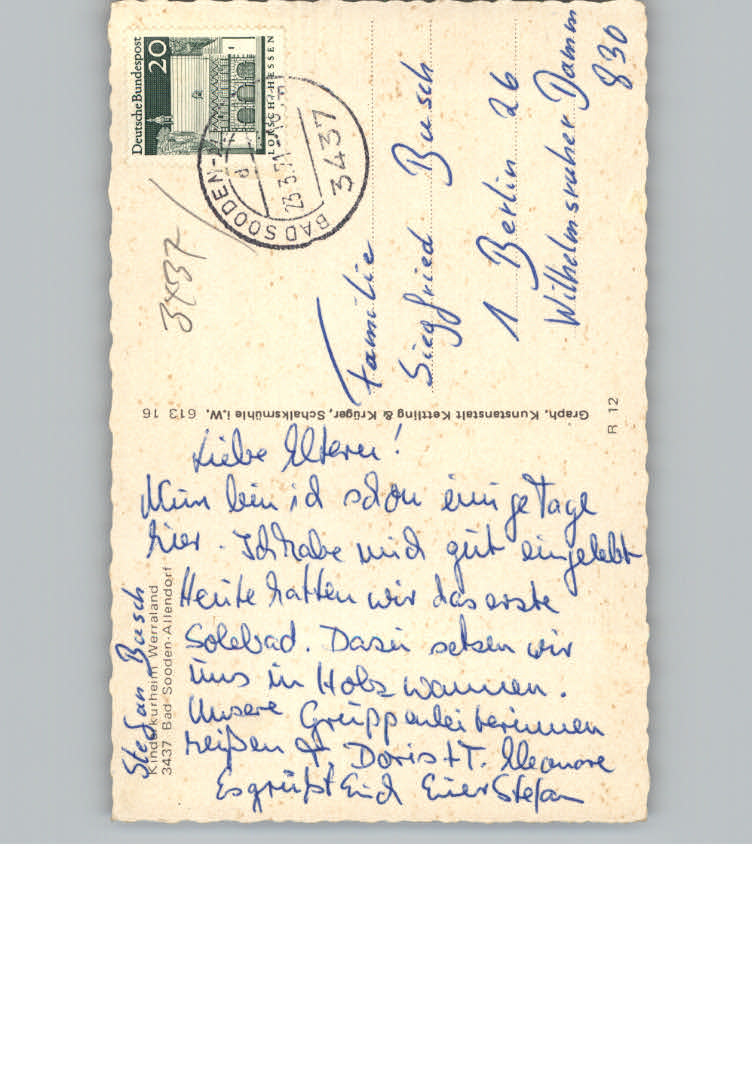 Deutsche Bundespost
20
LORSCH/HESSEN
BAD SOODEN-
d
23.3.71
3437
3437
Familie
Siegfried Busch
1 Berlin 26
Wilhelmsruher Damm
830
Graph. Kunstanstalt Kettling & Krüger, Schalksmühle i.W. 613 16
R 12
Liebe Eltern!
Nun bin ich schon einige Tage
hier. Ich habe mich gut eingelebt
Heute hatten wir das erste
Solebad. Dazu setzen wir
uns in Holzwannen.
Unsere Gruppenleiterinnen
heißen T. Doris + T. Eleonore
Es grüßt Euch Euer Stefan
Stefan Busch
Kinderkurheim Werraland
3437 Bad Sooden-Allendorf